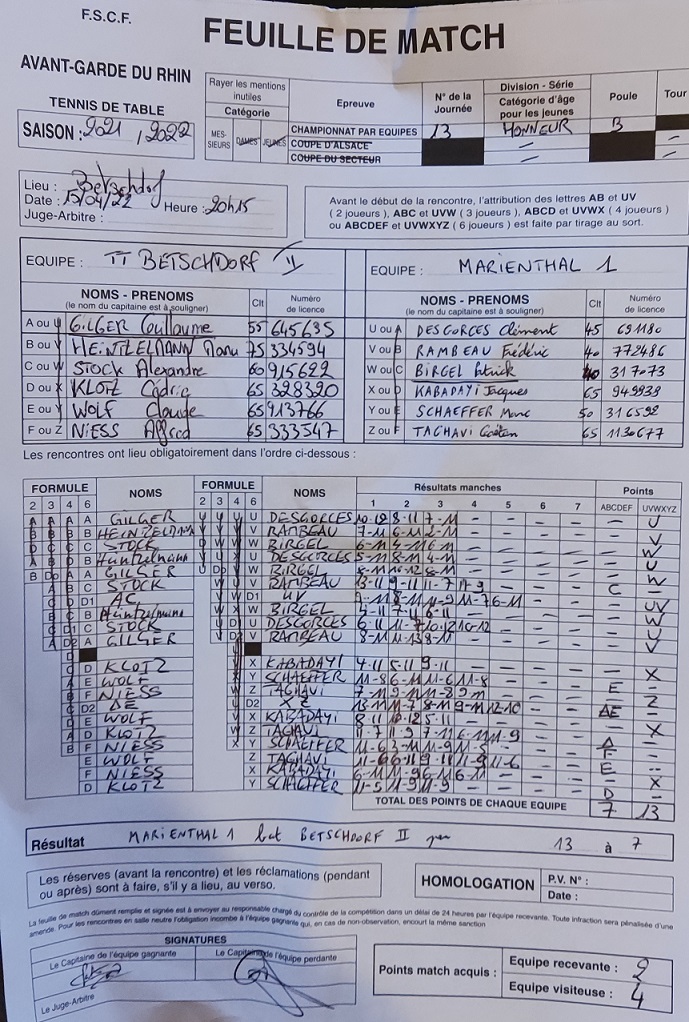 F.S.C.F.
FEUILLE DE MATCH
AVANT-GARDE DU RHIN
TENNIS DE TABLE
SAISON : 2021 , 2022
Rayer les mentions inutiles
Catégorie
MES-SIEURS DAMES JEUNES
Epreuve
CHAMPIONNAT PAR EQUIPES
COUPE D'ALSACE
COUPE DU SECTEUR
N° de la Journée
13
Division - Série
Catégorie d'âge pour les jeunes
HONNEUR
Poule
B
Tour
Lieu : Betschdorf
Date : 15/04/22 Heure : 20h15
Juge-Arbitre :
Avant le début de la rencontre, l'attribution des lettres AB et UV
( 2 joueurs ), ABC et UVW ( 3 joueurs ), ABCD et UVWX ( 4 joueurs )
ou ABCDEF et UVWXYZ ( 6 joueurs ) est faite par tirage au sort.
EQUIPE : TT BETSCHDORF II
EQUIPE : MARIENTHAL 1
NOMS - PRENOMS
(le nom du capitaine est à souligner)
Clt
Numéro de licence
NOMS - PRENOMS
(le nom du capitaine est à souligner)
Clt
Numéro de licence
A ou U GILGER Guillaume 55 645635
U ou A DESGORCES Clément 45 691180
B ou V HEINTZELMANN Manu 75 334594
V ou B RAMBEAU Frédéric 40 772486
C ou W STOCK Alexandre 60 915622
W ou C BIRGEL Patrick 40 317073
D ou X KLOTZ Cédric 65 328320
X ou D KABADAYI Jacques 65 949939
E ou Y WOLF Claude 65 913766
Y ou E SCHAEFFER Marc 50 316592
F ou Z NIESS Alfred 65 333547
Z ou F TAGHAVI Gaëten 65 1130677
Les rencontres ont lieu obligatoirement dans l'ordre ci-dessous :
FORMULE NOMS FORMULE NOMS Résultats manches Points
2 3 4 6 2 3 4 6 1 2 3 4 5 6 7 ABCDEF UVWXYZ
A GILGER U DESGORCES 10-12 8-11 7-11 U
B HEINTZELMANN V RAMBEAU 7-11 6-11 2-11 V
C STOCK W BIRGEL 6-11 4-11 6-11 W
B Heintzelmann U DESGORCES 5-11 8-11 4-11 U
A GILGER W BIRGEL 8-11 10-12 8-11 W
C STOCK V RAMBEAU C
D1 AC W1 UV UV
B Heintzelmann W BIRGEL 4-11 7-11 6-11 W
C STOCK U DESGORCES 6-11 11-7 10-12 10-12 U
A GILGER V RAMBEAU 8-11 11-13 8-11 V
D KLOTZ X KABADAYI 4-11 5-11 9-11 X
E WOLF Y SCHAEFFER 11-8 6-11 11-6 11-8 E
F NIESS Z TAGHAVI Z
D2 AE D2 XZ AE
E WOLF X KABADAYI 8-11 10-12 5-11 X
D KLOTZ Z TAGHAVI
F NIESS Y SCHAEFFER 11-6 3-11 11-9 11-5 F
E WOLF Z TAGHAVI E
F NIESS X KABADAYI 6-11 11-9 6-11 6-11 X
D KLOTZ Y SCHAEFFER 11-5 11-9 11-9 D
TOTAL DES POINTS DE CHAQUE EQUIPE 7 13
Résultat MARIENTHAL 1 bat BETSCHDORF II par 13 à 7
Les réserves (avant la rencontre) et les réclamations (pendant
ou après) sont à faire, s'il y a lieu, au verso.
HOMOLOGATION
P.V. N° :
Date :
La feuille de match dûment remplie et signée est à envoyer au responsable chargé du contrôle de la compétition dans un délai de 24 heures par l'équipe recevante. Toute infraction sera pénalisée d'une
amende. Pour les rencontres en salle neutre l'obligation incombe à l'équipe gagnante qui, en cas de non-observation, encourt la même sanction
SIGNATURES
Le Capitaine de l'équipe gagnante
Le Capitaine de l'équipe perdante
Le Juge-Arbitre
Points match acquis :
Equipe recevante : 2
Equipe visiteuse : 4